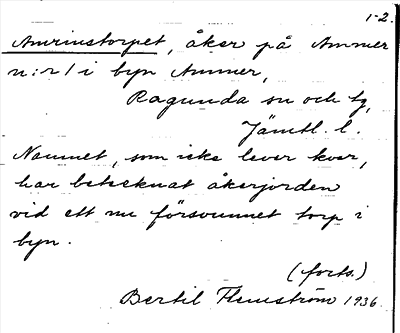 1-2.
Amrinstorpet, åker på Ammer
n:r 1 i byn Ammer,
Ragunda sn och tg,
Jämtl. l.
Namnet, som icke lever kvar,
har betecknat åkerjorden
vid ett nu försvunnet torp i
byn.
(forts.)
Bertil Flemström 1936.